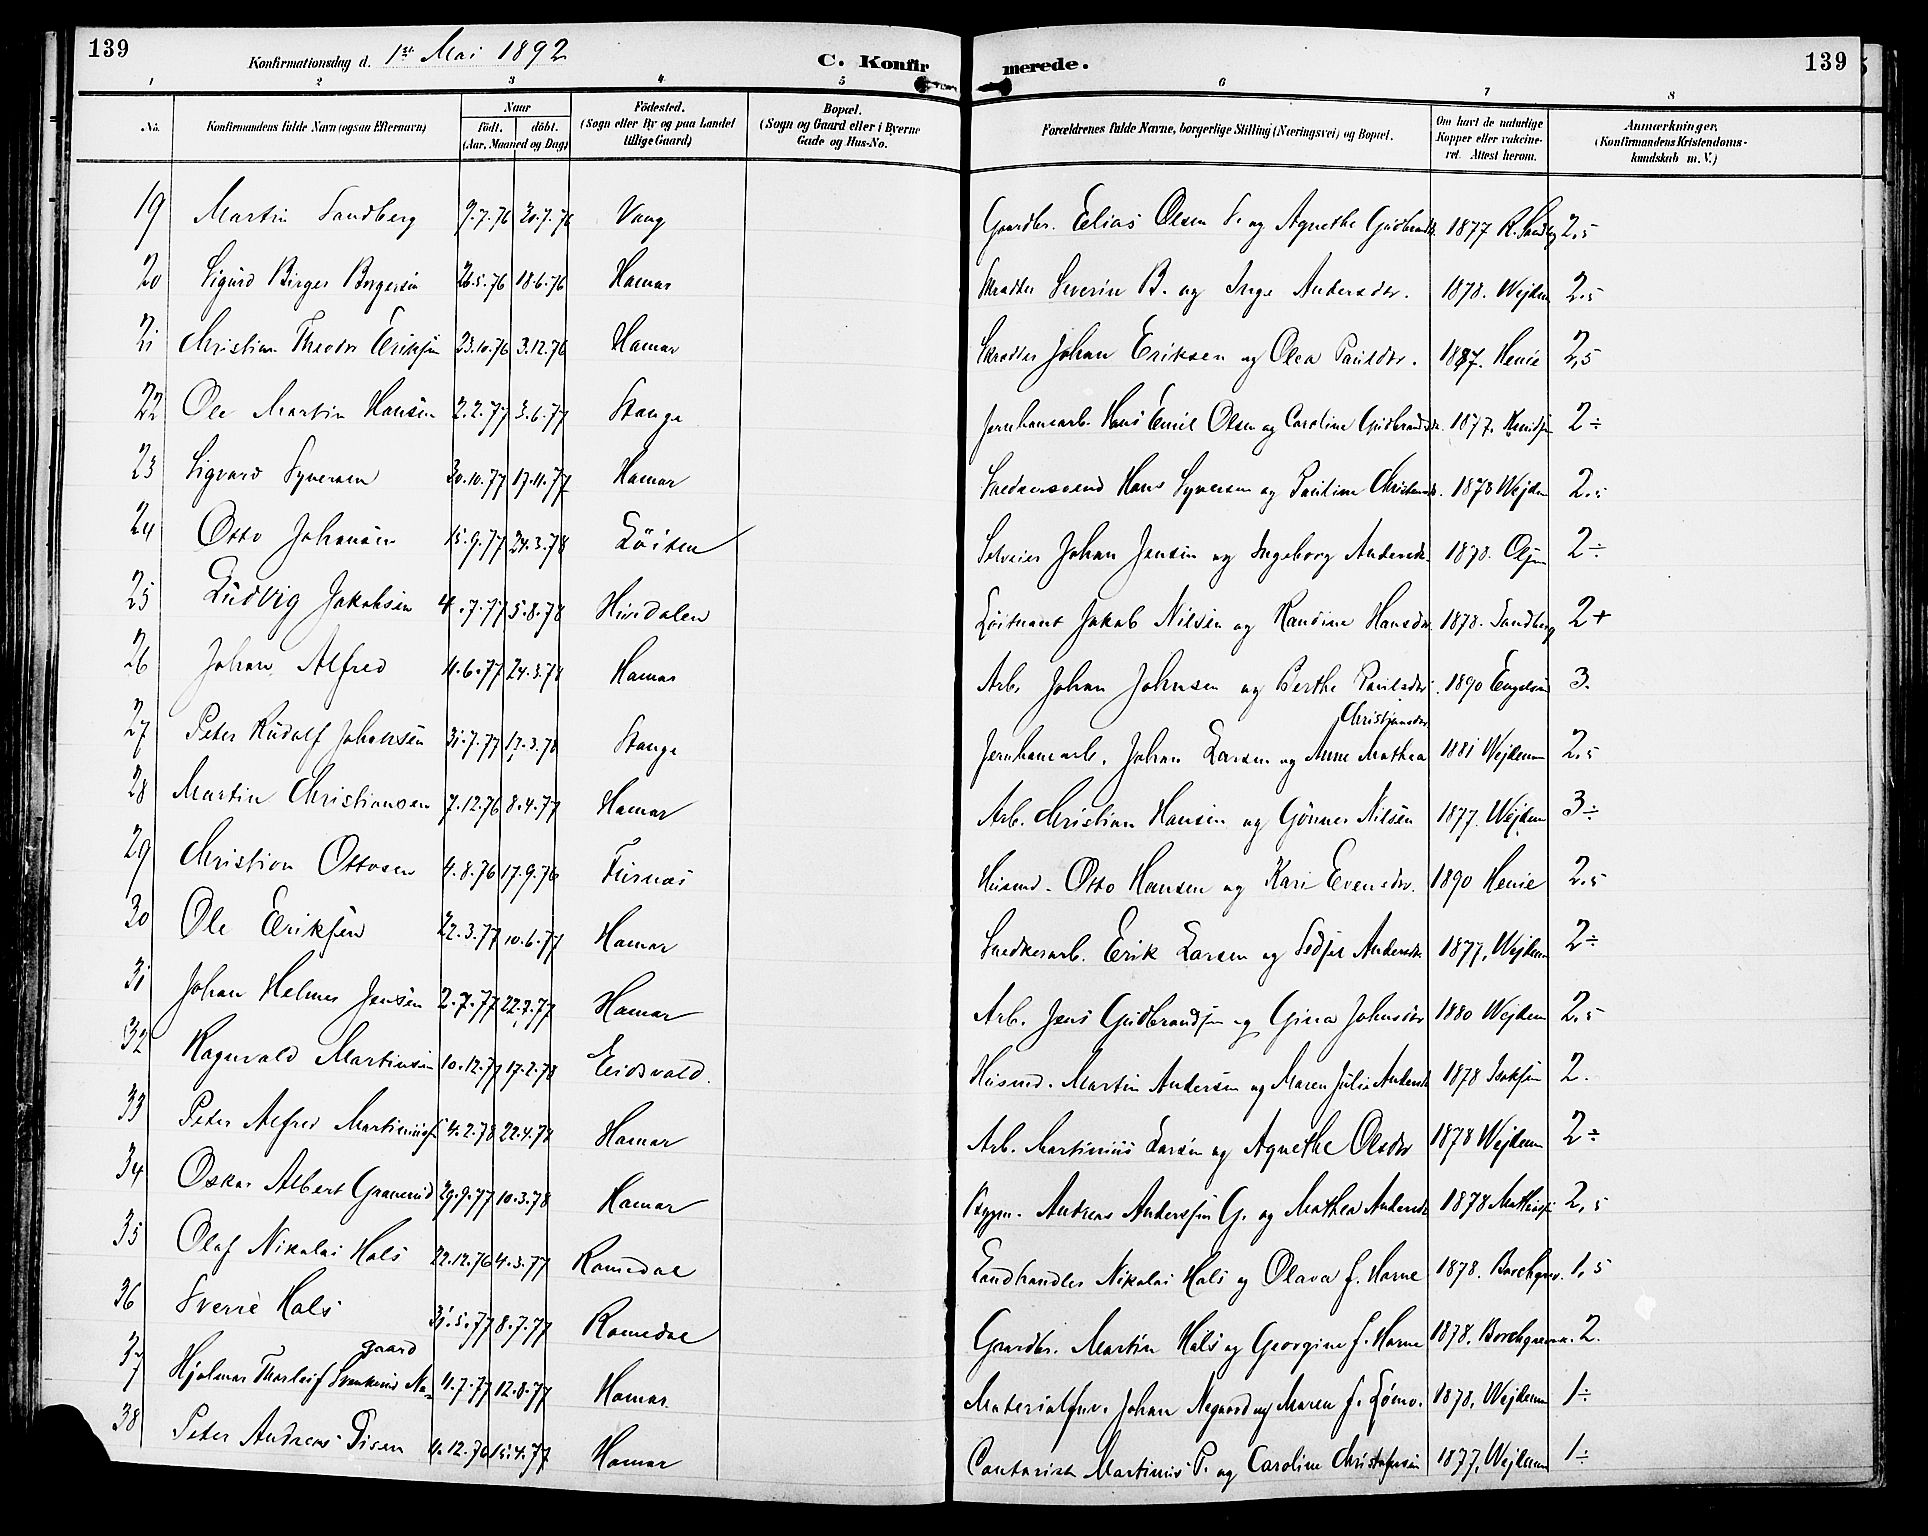 139
Konfirmationsdag d. 1ste Mai 1892
C. Konfirmerede.
139
1 2 3 4 5 6 7 8
No.
Konfirmandens fulde Navn (ogsaa Efternavn)
Naar
födt. döbt.
(Aar, Maaned og Dag)
Födested.
(Sogn eller By og paa Landet tillige Gaard)
Bopæl.
(Sogn og Gaard eller i Byerne Gade og Hus-No.
Forældrenes fulde Navne, borgerlige Stilling (Næringsvei) og Bopæl.
Om havt de naturlige Kopper eller vakcineret. Attest herom.
Anmærkninger.
(Konfirmandens Kristendomskundskab m. V.)
19 Martin Sandberg 9.7.76 30.7.76 Vang Gaardbr. Elias Olsen S. og Agnethe Gudbrandsdr. 1877 R. Sandberg 2,5
20 Sigurd Birger Borgersen 26.5.76 18.6.76 Hamar Skrædder Severin B. og Inge Andersdtr. 1878. Wejdem 2,5
21 Christian Theodor Eriksen 23.10.76 3.12.76 Hamar Skrædder Johan Eriksen og Olea Paulsdtr. 1887. Henie 2,5
22 Ole Martin Hansen 2.2.77 3.6.77 Stange Jernbanearb. Hans Emil Olsen og Caroline Gudbrandsdr. 1877. Knudsen 2÷
23 Sigvard Syversen 30.10.77 17.11.77 Hamar Hans Syversen og Pauline 1878 Wejdem 2,5
24 Otto Johansen 15.9.77 24.3.78 Löiten Selveier Johan Jensen og Ingeborg Andersdr. 1878. 2÷
25 Ludvig Jakobsen 4.7.77 5.8.78 Hurdalen Löitnant Jakob Nilsen og Randine Hansdr. 1878. Sandberg 2+
26 Johan Alfred 11.6.77 24.3.78 Hamar Arb. Johan Johnsen og Berthe Paulsdtr. 1890 3.
27 Peter Rudolf Johansen 31.7.77 17.3.78 Stange Jernbanearb. Johan Larsen og Anne Mathea Christiansdtr 1881 Wejdemn 2,5
28 Martin Christiansen 7.12.76 8.4.77 Hamar Arb. Christian Hansen og Gunner Nilsen 1877. Wejdem 3÷
29 Christian Ottosen 4.8.76 17.9.76 Furnæs Husmd. Otto Hansen og Kari Evensdtr. 1890 Henie 2,5
30 Ole Eriksen 22.3.77 10.6.77 Hamar Snedkerarb. Erik Larsen og Sidsel Andersdr. 1877, Wejdem 2÷
31 Johan Helmer Jensen 2.7.77 22.7.77 Hamar Arb. Jens Gudbrandsen og Gina Johnsdtr 1880 Wejdem 2,5
32 Ragnvald Martinsen 10.12.77 17.2.78 Eidsvold. Husmd. Martin Andersen og Maren Julie Andersdr 1878 Isaksen 2.
33 Peter Alfred Martiniusen 4.2.78 22.4.78 Hamar Arb. Martinius Larsen og Agnethe Olsdtr 1878 Wejdemn 2÷
34 Oskar Albert Granerud 29.9.77 10.3.78 Hamar Bygm. Andreas Andersen G. og Mathea Andersdr 1878 Mathisen 2,5
35 Olaf Nikolai Hals 22.12.76 4.3.77 Romedal Landhandler Nikolai Hals og Olava f. Horne 1878. Borchgrev. 1,5
36 Sverre Hals 31.5.77 8.7.77 Romedal Gaardbr. Martin Hals og Georgine f. Horne 1878. Borchgrevink. 2.
37 Hjalmar Thorleif Svenkerud Negaard 11.7.77 12.8.77 Hamar. Materialforv. Johan Negaard og Maren f. 1878, Wejdemn 1÷
38 Peter Andreas Disen 4.12.76 15.4.77 Hamar Contorist Martinius P. og Caroline Christofersen 1877, Wejdemn 1÷